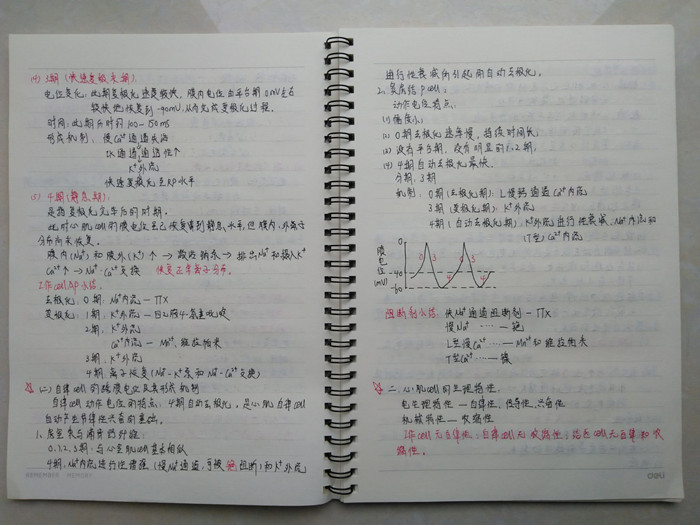 (4) 3期(快速复极末期):
电位变化:此期复极化速度较快,膜内电位由平台期0mV左右
较快地恢复到-90mV,从而完成复极化过程。
时间:此期历时约100~150ms
形成机制:慢Ca²⁺通道失活
IK通道通透性↑
K⁺外流
快速复极化至RP水平
(5) 4期(静息期):
是指复极化完毕后的时期。
此时心肌cell的膜电位虽已恢复到静息水平,但膜内、外离子
分布尚未恢复。
膜内(Na⁺)和膜外(K⁺)↑ → 激活钠泵 → 排出Na⁺和摄入K⁺
Ca²⁺↑ → Na⁺-Ca²⁺交换 恢复正常离子分布。
工作cell AP小结:
去极化:0期:Na⁺内流 — TTX
复极化:1期:K⁺外流 — 四氨基吡啶
2期:K⁺外流
Ca²⁺内流 — Mn²⁺、维拉帕米
3期:K⁺外流
4期:离子恢复(Na⁺-K⁺泵和Na⁺-Ca²⁺交换)
(二) 自律cell的跨膜电位及其形成机制
自律cell动作电位的特点:4期自动去极化,是心肌自律cell
自动产生节律性兴奋的基础。
1、
0、1、2、3期:与心室肌cell基本相似
4期:Na⁺内流进行性增强(慢Na⁺通道,可被铯阻断)和K⁺外流
REMEMBER MEMORY
进行性衰减所引起的自动去极化。
2、窦房结P cell:
动作电位特点:
(1) 幅度小;
(2) 0期去极化速率慢,持续时间长;
(3) 没有平台期,没有明显的1、2期;
(4) 4期自动去极化最快。
分期:3期
机制:0期(去极化期):L慢钙通道Ca²⁺内流
3期(复极化期):K⁺外流
4期(自动去极化期):K⁺外流进行性衰减、Na⁺内流和
(T型)Ca²⁺内流
膜电位(mV)
0
-40
-60
0 3 4 0 3 4
阻断剂小结:快Na⁺通道阻断剂 — TTX
慢Na⁺ …… — 铯
L型慢Ca²⁺ …… — Mn²⁺和维拉帕米
T型Ca²⁺ …… — 镍
二、心肌cell的生理特性:
电生理特性 — 自律性、传导性、兴奋性
机械特性 — 收缩性
工作cell无自律性;自律cell无收缩性;结区cell无自律和收
缩性。
deli